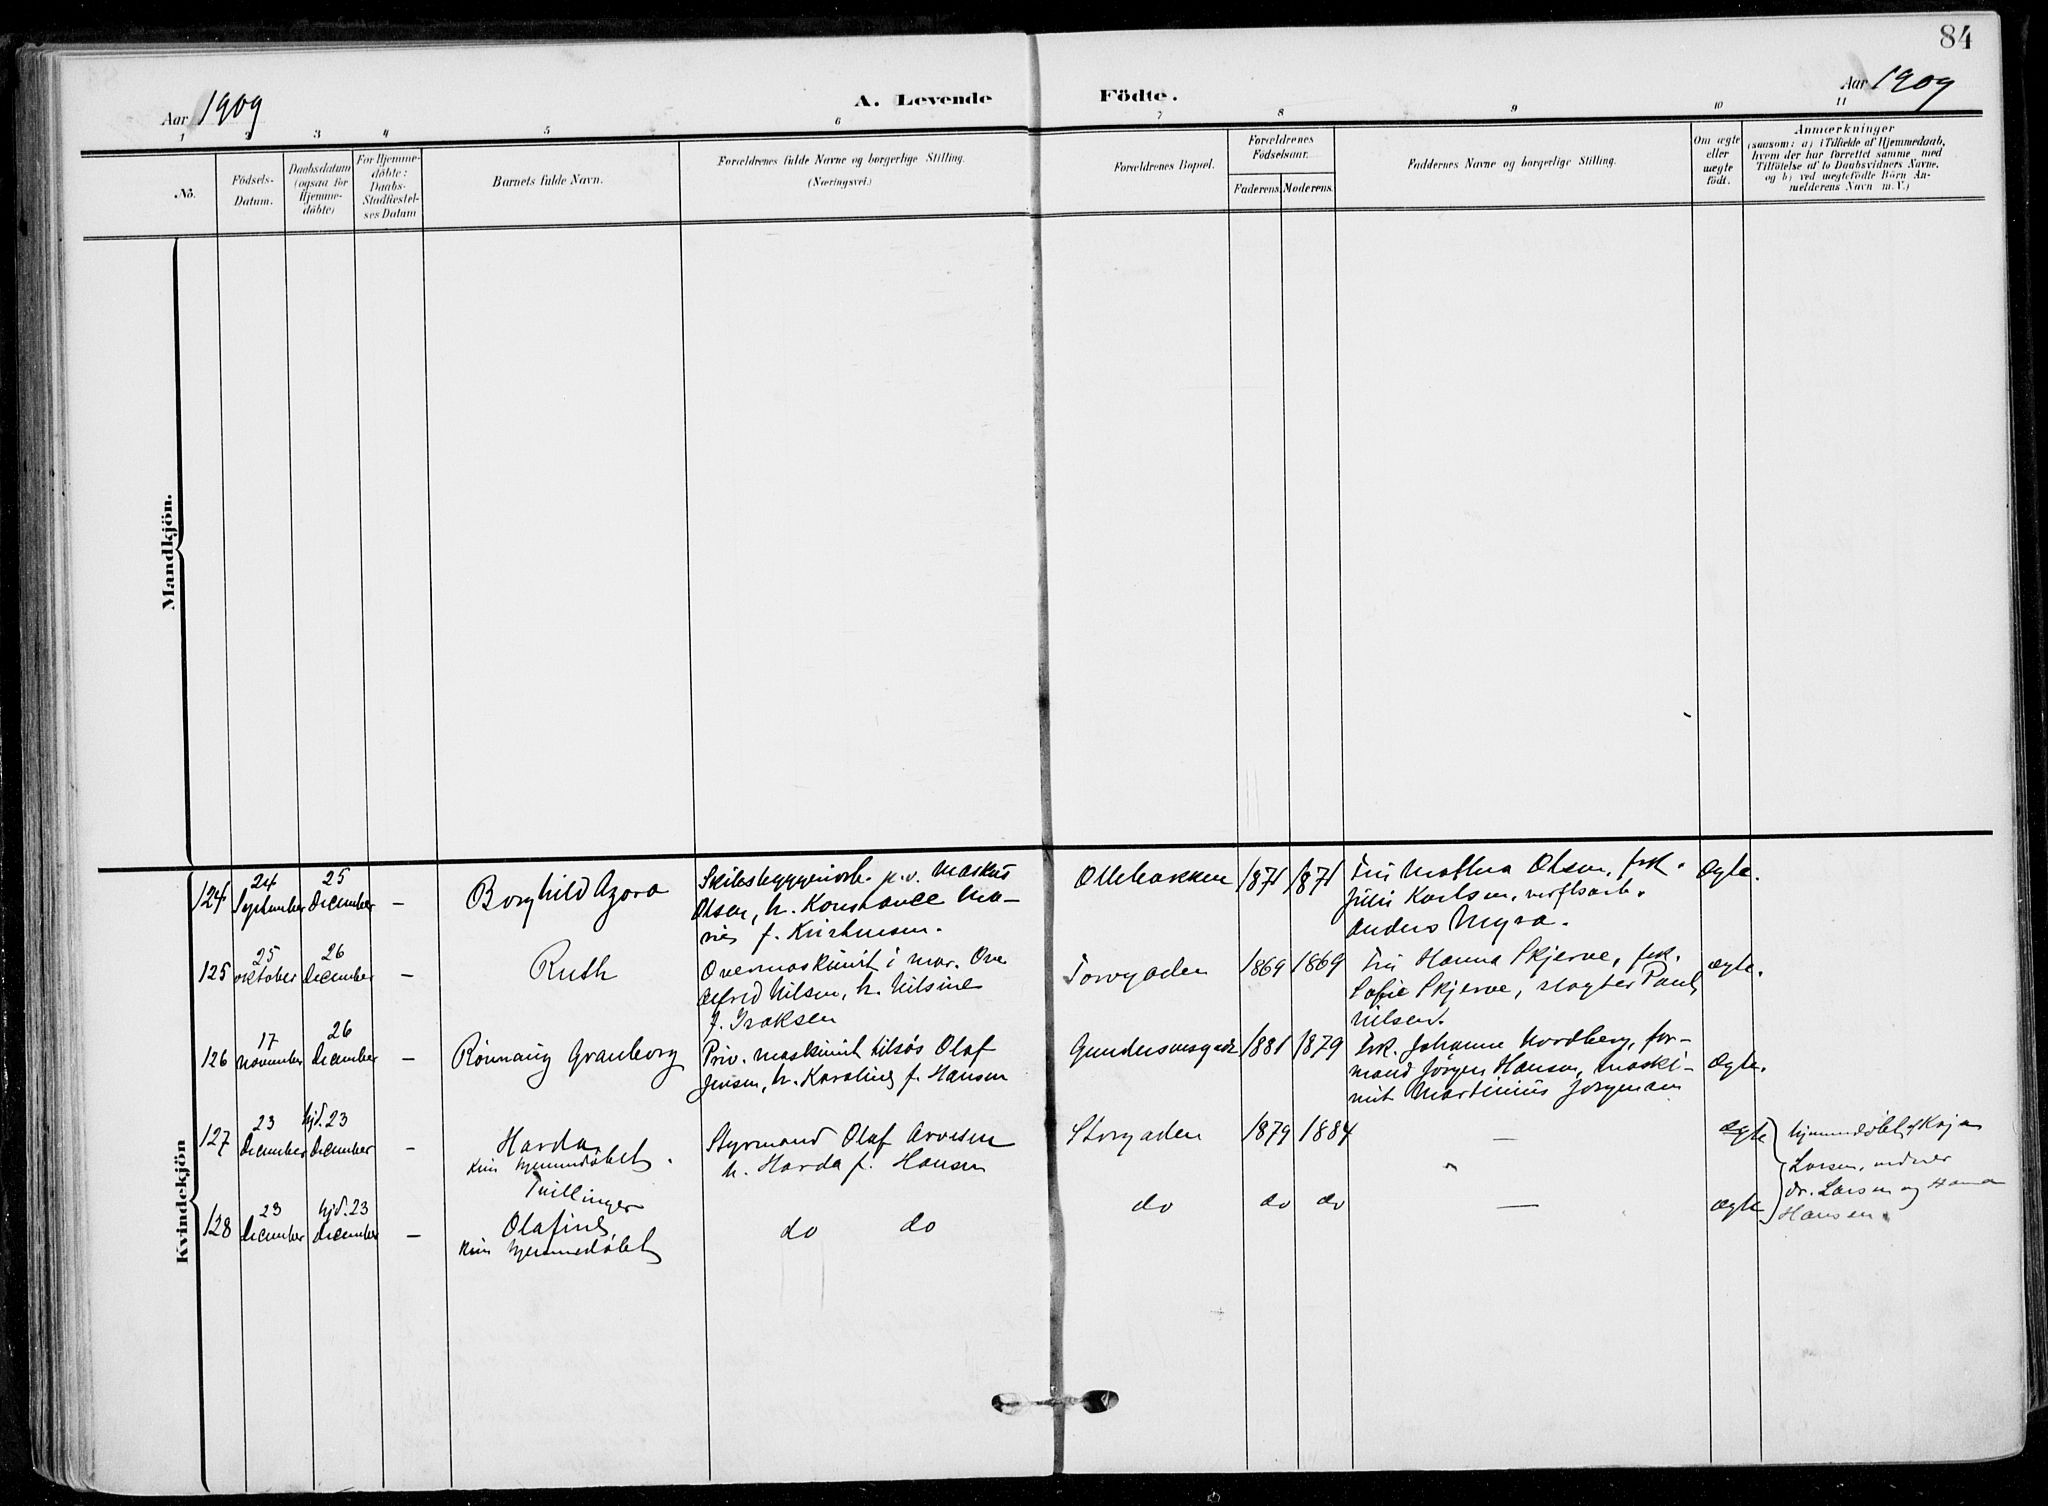 84
Aar 1909
A. Levende Födte.
Aar 1909
1 2 3 4 5 6 7 8 9 10 11
No.
Födsels-
Datum.
Daabsdatum
(ogsaa for
Hjemme-
döbte)
For Hjemme-
döbte:
Daabs-
Stadfæstel-
ses Datum
Barnets fulde Navn.
Forældrenes fulde Navne og borgerlige Stilling.
(Næringsvei.)
Forældrenes Bopæl.
Forældrenes
Födselsaar.
Faderens. Moderens.
Faddernes Navne og borgerlige Stilling.
Om ægte
eller
uægte
födt.
Anmærkninger
(saasom: a) i Tilfælde af Hjemmedaab,
hvem der har forrettet samme med
Tilföielse af to Daabsvidners Navne.
og b) ved uægtefödte Börn An-
melderens Navn m. V.)
Mandkjön.
Kvindekjön
124
24
September
25
December
–
Borghild Agora
Olsen, h. Konstance Ma-
rie f. Kristensen.
Ollebakken
1871
1871
Fru Mathea Olsen, frk.
Julie Karlsen, verftsarb.
Anders Myra.
Ægte.
125
25
oktober
26
December
–
Ruth
Overmaskinist i mar. Ove
Alfred Nilsen, h. Nilsine
f. Isaksen
Torvgaden
1869
1869
Fru Hanna Skjerve, frk.
Sofie Skjerve, slagter Paul
Nilsen.
ægte.
126
17
November
26
December
–
Rönnaug Granborg
Priv. maskinist tilsös Olaf
Jensen, h. Karoline f. Hansen
Gundersensgade
1881
1879
Frk. Johanne Nordberg, for-
mand Jörgen Hansen, maski-
nist Martinius Jörgensen
Ægte.
127
23
December
hjd. 23
December
–
Harda
kun hjemmedöbet.
Styrmand Olaf Arvesen
h. Harda f. Hansen
Storgaden
1879
1884
—
ægte
hjemmedöbt af Kaja
Larsen, vidner
dr. Larsen og Hanna
Hansen.
Tvillinger
128
23
December
hjd. 23
December
–
Olafine
kun hjemmedöbet
do do
do
do
do
—
ægte